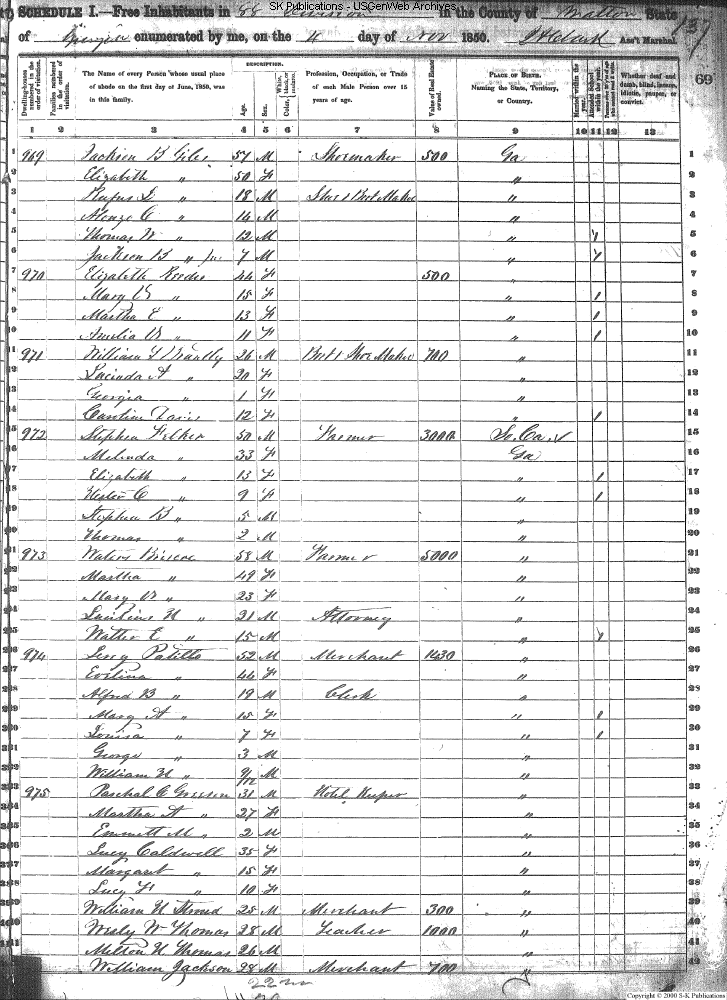 SK Publications - USGenWeb Archives
SCHEDULE I.—Free Inhabitants in 88 Division in the County of Walton State
of Georgia enumerated by me, on the 4 day of Nov 1850. Ass't Marshal.
69
Dwelling-houses numbered in the order of visitation.
Families numbered in the order of visitation.
The Name of every Person whose usual place of abode on the first day of June, 1850, was in this family.
DESCRIPTION.
Age.
Sex.
Color,
Profession, Occupation, or Trade of each Male Person over 15 years of age.
Value of Real Estate owned.
PLACE OF BIRTH. Naming the State, Territory, or Country.
Married within the year.
Attended School within the year.
Whether deaf and dumb, blind, insane, idiotic, pauper, or convict.
1 2 3 4 5 6 7 8 9 10 11 12 13
1 969 Jackson B Giles 57 M Shoemaker 500 Ga 1
2 Elizabeth " 50 F " 2
3 Rufus " 18 M Shoe & Boot Maker " 3
4 Alonzo C " 14 M " 4
5 Thomas W " 12 M " 1 5
6 Jackson B " Jr 7 M " 1 6
7 970 Elizabeth Reeder 44 F 500 " 7
8 Mary " 15 F " 1 8
9 Martha E " 13 F " 1 9
10 Amelia " 11 F " 1 10
11 971 William Brantly 26 M Boot & Shoe Maker 700 " 11
12 Lucinda A " 20 F " 12
13 Georgia " 1 F " 13
14 Caroline Davis 12 F " 1 14
15 972 Stephen Felker 50 M Farmer 3000 So. Ca. 15
16 Melinda " 33 F Ga 16
17 Elizabeth " 13 F " 1 17
18 Hester C " 9 F " 1 18
19 Stephen B " 5 M " 19
20 Thomas " 2 M " 20
21 973 Waters Briscoe 58 M Farmer 5000 " 21
22 Martha " 49 F " 22
23 Mary " 23 F " 23
24 " 21 M Attorney " 24
25 Walter E " 15 M " 1 25
26 974 52 M Merchant 1430 " 26
27 Evelina " 44 F " 27
28 Alfred B " 19 M Clerk " 28
29 Mary A " 15 F " 1 29
30 Louisa " 7 F " 1 30
31 George " 3 M " 31
32 William H " 9/12 M " 32
33 975 Paschal C 31 M Hotel Keeper " 33
34 Martha A " 27 F " 34
35 Emmett M " 2 M " 35
36 Lucy Caldwell 35 F " 36
37 Margaret " 15 F " 37
38 Lucy F " 10 F " 38
39 William H Stroud 25 M Merchant 300 " 39
40 Wesly W Thomas 28 M Teacher 1000 " 40
41 Milton H Thomas 26 M " 41
42 William Jackson 28 M Merchant 700 " 42
22 m
Copyright © 2000 S-K Publications